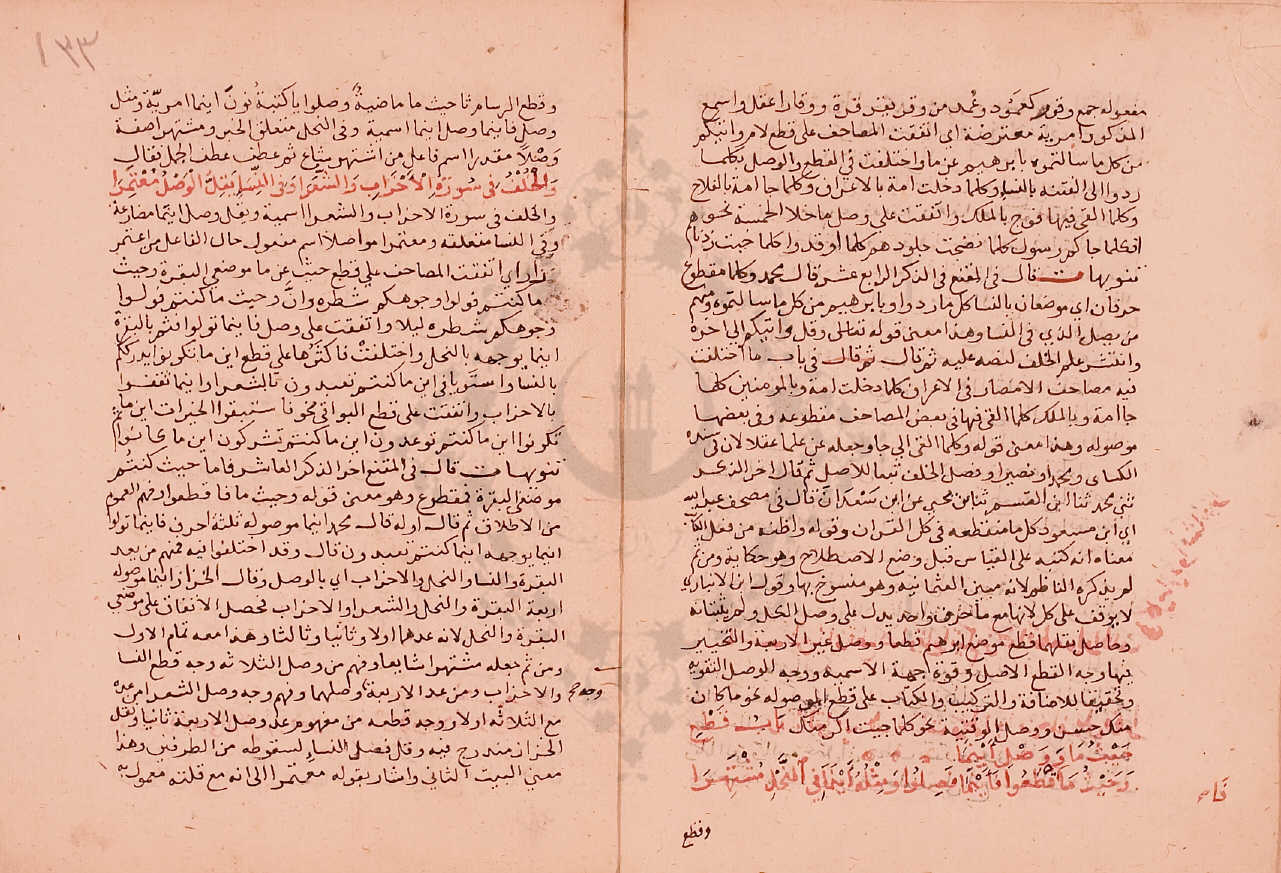 مفعوله جمع وقور كعمود وعُمد من وقر يقر قرة ووقارا اعقل واسمع
المذكور امرية معترضة اى اتفقت المصاحف على قطع لام واتيكم
من كل ما سالتموه بابرهيم عن ما واختلفت فى القطع والوصل بكلما
ردوا الى الفتنه بالنساء وكلما دخلت امة بالاعراف وكلما جا امة بالفلاح
وكلما القى فيها فوج بالملك واتفقت على وصل ما خلا الخمسة نحو
افكلما جاكم رسول كلما نضجت جلودهم كلما اوقدوا كلما خبت زدناهم
تنبيهات قال فى المقنع فى الذكر الرابع عشر قال محمد وكلما مقطوع
حرفان اى موضعان بالنسا كل ما ردوا وبابرهيم من كل ما سالتموه ومنهم
من يصل الذى فى النسا وهذا معنى قوله تعالى وقل واتيكم الى اخره
وانتشر علم الخلف لنصه عليه ثم قال ثم قال فى باب ما اختلفت
فيه مصاحف الامصار فى الاعراف كلما دخلت امة وبالمومنين كلما
جا امة وبالملك كلما القى فيها فى بعض المصاحف مقطوعه وفى بعضها
موصوله وهذا معنى قوله وكلما القى الى جا وجعله عن علما عقلا لان فى سنده
الكساى ومحمد او نصيرا وفصل الخلف تبعا للاصل ثم قال اخر الذكر
ثنى محمد ثنا ابن القسم ثنا بن يحيى عن ابن سَعْدَان قال فى مصحف عبد الله
اى ابن مسعود كل ما منقطعه فى كل القران وقوله واظنه من فعل الكاتب
معناه انه كتبه على القياس قبل وضع الاصطلاح وهو حكاية ومن ثم
لم يذكره الناظم لانه مبين العثمانيه وهو منسوخ بها وقول ابن الانبارى
لا يوقف على كل لانها مع ما حرف واحد يدل على وصل الكل ولم يثبتانه
وحاصل نقلهما قطع موضع ابرهيم قطعا ووصل غير الاربعة والتخيير
فيها وجه القطع الاصل وقوة جهة الاسميه ووجه الوصل التقويه
وتحقيقا للاضافة والتركيب والكتاب على قطع الموصوله نحو ما كان
مثلك حسن ووصل الوقتية نحو كلما جيت اكرمتك بَابُ قَطْعِ
حَيْثُ مَا وَ وَصْلِ اَيْنَمَا
وَحَيْثُ مَا فَاقْطَعُوا فَاَيْنَمَا فَصِلُوا وَمِثْلُهُ اَيْنَمَا فِى النَّحْلِ مُشْتَهِرَا
وقطع
وقطع الرسام ثا حيث ما ماضية وصلوا يا كتبةُ نونَ اينما امرية ومثل
وصل فاينما وصل اينما اسمية وفى النحل متعلق الخبر ومشتهرا صفة
وصْلاً مقدر اسم فاعل من اشتهر شاع ثم عطف عطف الجمل فقال
وَالْخُلْفُ فى سُورَةِ الْاَحْزَابِ وَالشُّعَرَا وَفى النِّسَا يَقِلُّ الْوَصْلُ مُعْتَمِرَا
والخلف فى سورة الاحزاب والشعرا اسمية ويقل وصل اينما مضارعة
وفى النسا متعلقه ومعتمرا مواصلا اسم مفعول حال الفاعل من اعتمر
زار اى اتفقت المصاحف على قطع حيث عن ما موضعى البقرة وحيث
ما كنتم فولوا وجوهكم شطره وانَّ وحيث ما كنتم فولوا
وجوهكم شطره ليلا واتفقت على وصل فاينما تولوا فثم بالبقرة
اينما يوجهه بالنحل واختلفت فاكثرها على قطع اين ما تكونوا يدرككم
بالنسا واستويا فى اين ما كنتم تعبدون بالشعرا واينما ثقفوا
بالاحزاب واتفقت على قطع البواقى نحو فاستبقوا الخيرات اين ما
تكونوا اين ما كنتم توعدون اين ما كنتم تشركون اين ما كانوا ثم
تنبيهات قال فى المقنع اخر الذكر العاشر فاما حيث كنتم
موضعى البقرة فمقطوع وهو معنى قوله وحيث ما فاقطعوا وفهم العموم
من الاطلاق ثم قال اوله قال محمد اينما موصوله ثلثة احرف فاينما تولوا
اينما يوجهه اينما كنتم تعبدون قال وقد اختلفوا فيه فمنهم من يعد
البقرة والنسا والنحل والاحزاب اى بالوصل وقال الخزاز اينما موصوله
اربعة البقرة والنحل والشعرا والاحزاب فحصل الاتفاق على موضعى
البقرة والنحل لانه عدهما اولا وثانيا وثالثا وهذا معه تمام الاول
ومن ثم جعله مشتهرا شايعا وفهم من وصل الثلاثه وجه قطع النسا
والاحزاب ومن عد الاربعة وصلهما وفهم وجه وصل الشعرا من عده
مع الثلاثه اولا ووجه قطعه من مفهوم عد وصل الاربعة ثانيا ونقل
الخزاز مندرج فيه وقل فصل النساء لسقوطه من الطرفين وهذا
معنى البيت الثانى واشار بقوله معتمرا الى انه مع قلته معمول به